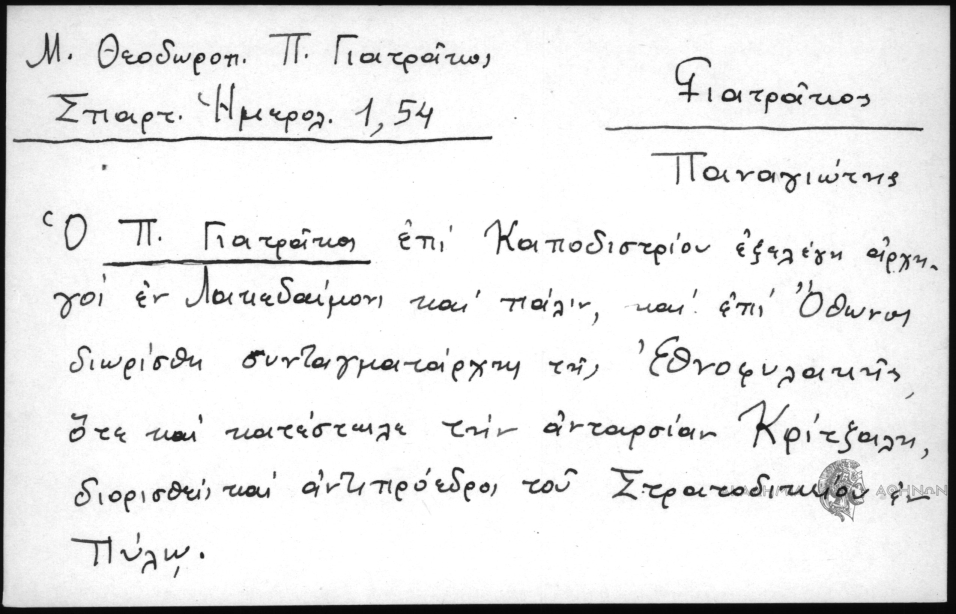 Μ. Θεοδωροπ. Π. Γιατρᾶκος
Σπαρτ. Ἡμερολ. 1, 54
Γιατρᾶκος
Παναγιώτης
Ὁ Π. Γιατρᾶκος ἐπί Καποδιστρίου ἐξελέγη ἀρχη-
γοί ἐν Λακεδαίμονι καί πάλιν, καί ἐπί Ὄθωνος
διωρίσθη συνταγματάρχης τῆς Ἐθνοφυλακῆς,
ὅτε καί κατέστειλε τήν ἀνταρσίαν Κρίτζαλη,
διορισθείς καί ἀντιπρόεδρος τοῦ Στρατοδικείου ἐν
Πύλῳ.
ΑΘΗΝΩΝ